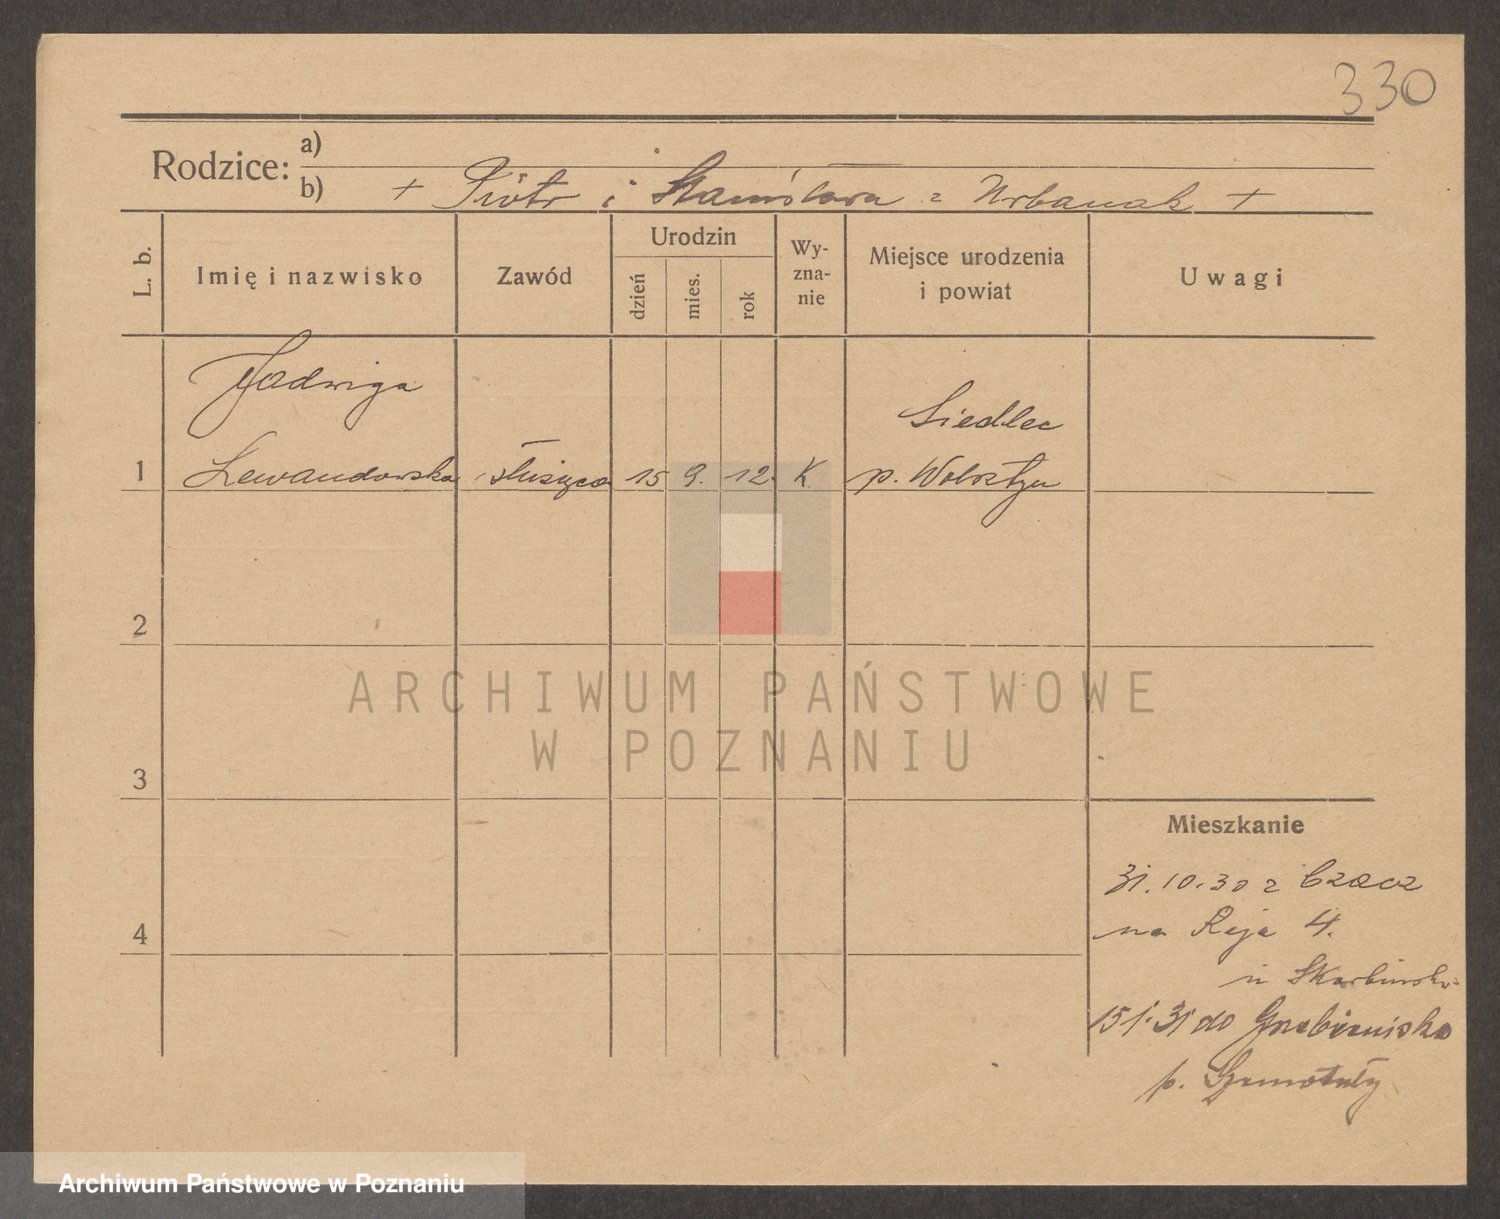 330
Rodzice:
a)
b) + Piotr i Stanisława z Urbaniak +
L. b.
Imię i nazwisko
Zawód
Urodzin
dzień
mies.
rok
Wy-
zna-
nie
Miejsce urodzenia
i powiat
Uwagi
Jadwiga
Siedlec
1 Lewandowska służąca 15 9. 12. K p. Wolsztyn
2
3
4
ARCHIWUM PAŃSTWOWE
W POZNANIU
Mieszkanie
31.10.30 z Czacz
na Reja 4.
u Skarbińsk.
15.1.31 do Grzebienisko
p. Szamotuły
Archiwum Państwowe w Poznaniu